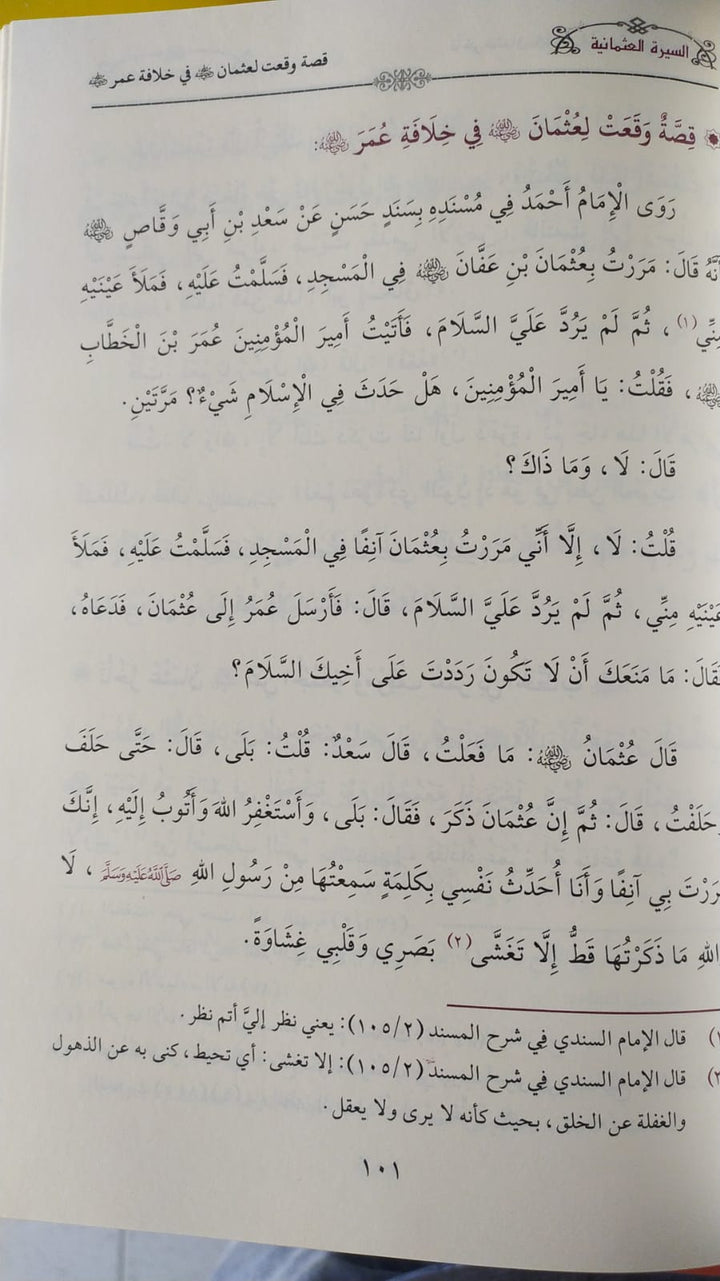 السيرة العثمانية
قصة وقعت لعثمان ﵁ في خلافة عمر ﵁
قِصَّةٌ وَقَعَتْ لِعُثْمَانَ ﵁ فِي خِلَافَةِ عُمَرَ ﵁:
رَوَى الْإِمَامُ أَحْمَدُ فِي مُسْنَدِهِ بِسَنَدٍ حَسَنٍ عَنْ سَعْدِ بْنِ أَبِي وَقَّاصٍ ﵁
أَنَّهُ قَالَ: مَرَرْتُ بِعُثْمَانَ بْنِ عَفَّانَ ﵁ فِي الْمَسْجِدِ، فَسَلَّمْتُ عَلَيْهِ، فَمَلَأَ عَيْنَيْهِ
مِنِّي (١)، ثُمَّ لَمْ يَرُدَّ عَلَيَّ السَّلَامَ، فَأَتَيْتُ أَمِيرَ الْمُؤْمِنِينَ عُمَرَ بْنَ الْخَطَّابِ
﵁، فَقُلْتُ: يَا أَمِيرَ الْمُؤْمِنِينَ، هَلْ حَدَثَ فِي الْإِسْلَامِ شَيْءٌ؟ مَرَّتَيْنِ.
قَالَ: لَا، وَمَا ذَاكَ؟
قُلْتُ: لَا، إِلَّا أَنِّي مَرَرْتُ بِعُثْمَانَ آنِفًا فِي الْمَسْجِدِ، فَسَلَّمْتُ عَلَيْهِ، فَمَلَأَ
عَيْنَيْهِ مِنِّي، ثُمَّ لَمْ يَرُدَّ عَلَيَّ السَّلَامَ، قَالَ: فَأَرْسَلَ عُمَرُ إِلَى عُثْمَانَ، فَدَعَاهُ،
فَقَالَ: مَا مَنَعَكَ أَنْ لَا تَكُونَ رَدَدْتَ عَلَى أَخِيكَ السَّلَامَ؟
قَالَ عُثْمَانُ ﵁: مَا فَعَلْتُ، قَالَ سَعْدٌ: قُلْتُ: بَلَى، قَالَ: حَتَّى حَلَفَ
وَحَلَفْتُ، قَالَ: ثُمَّ إِنَّ عُثْمَانَ ذَكَرَ، فَقَالَ: بَلَى، وَأَسْتَغْفِرُ اللهَ وَأَتُوبُ إِلَيْهِ، إِنَّكَ
مَرَرْتَ بِي آنِفًا وَأَنَا أُحَدِّثُ نَفْسِي بِكَلِمَةٍ سَمِعْتُهَا مِنْ رَسُولِ اللهِ ﷺ، لَا
وَاللهِ مَا ذَكَرْتُهَا قَطُّ إِلَّا تَغَشَّى (٢) بَصَرِي وَقَلْبِي غِشَاوَةً.
(١) قال الإمام السندي في شرح المسند (١٠٥/٢): يعني نظر إليَّ أتم نظر.
(٢) قال الإمام السندي في شرح المسند (١٠٥/٢): إلا تغشى: أي تحيط، كنى به عن الذهول
والغفلة عن الخلق، بحيث كأنه لا يرى ولا يعقل.
١٠١